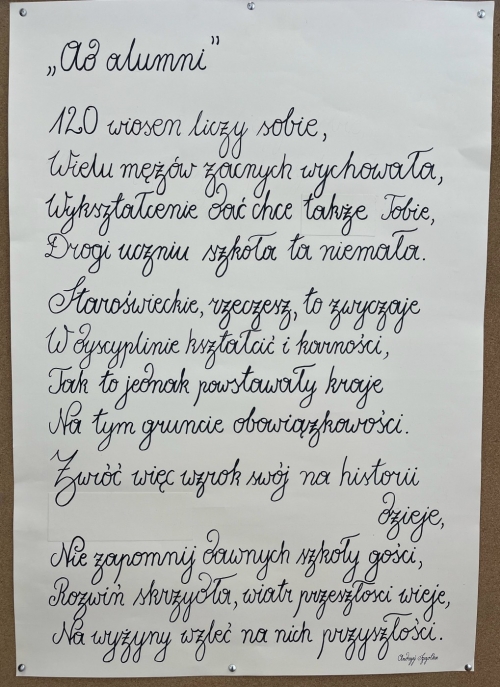 „Ad alumni”
120 wiosen liczy sobie,
Wielu mężów zacnych wychowała,
Wykształcenie dać chce także Tobie,
Drogi uczniu szkoła ta niemała.
Staroświeckie, rzeczesz, to zwyczaje
W dyscyplinie kształcić i karności,
Tak to jednak powstawały kraje
Na tym gruncie obowiązkowości.
Zwróć więc wzrok swój na historii
dzieje,
Nie zapomnij dawnych szkoły gości,
Rozwiń skrzydła, wiatr przeszłosci wieje,
Na wyżyny wzleć na nich przyszłości.